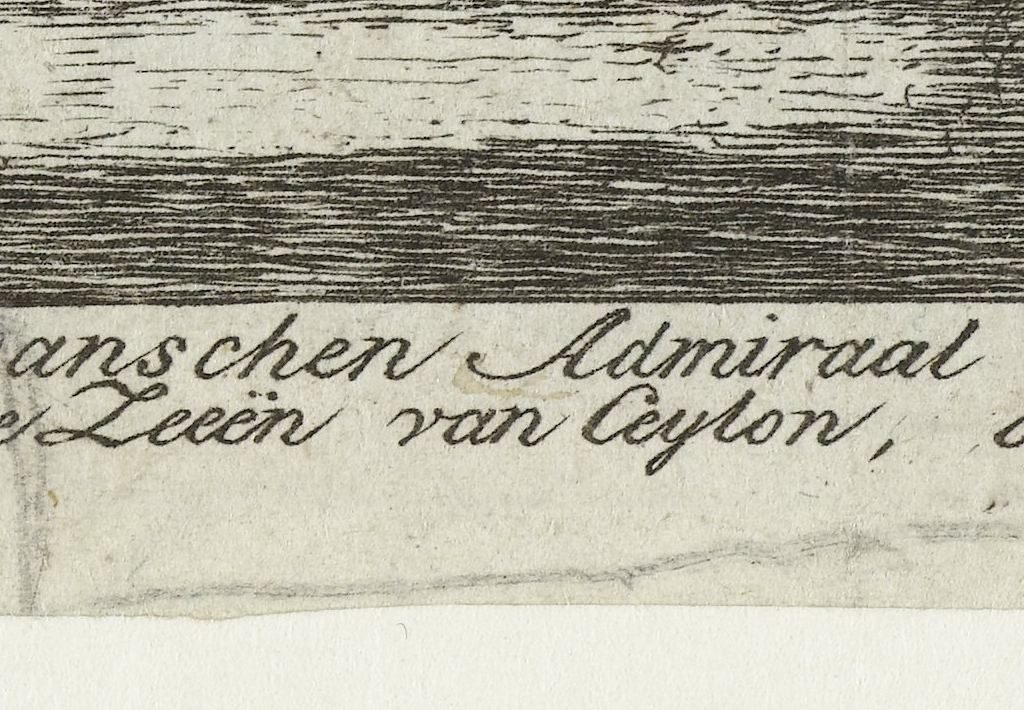 anschen Admiraal
Zeeën van Ceylon,